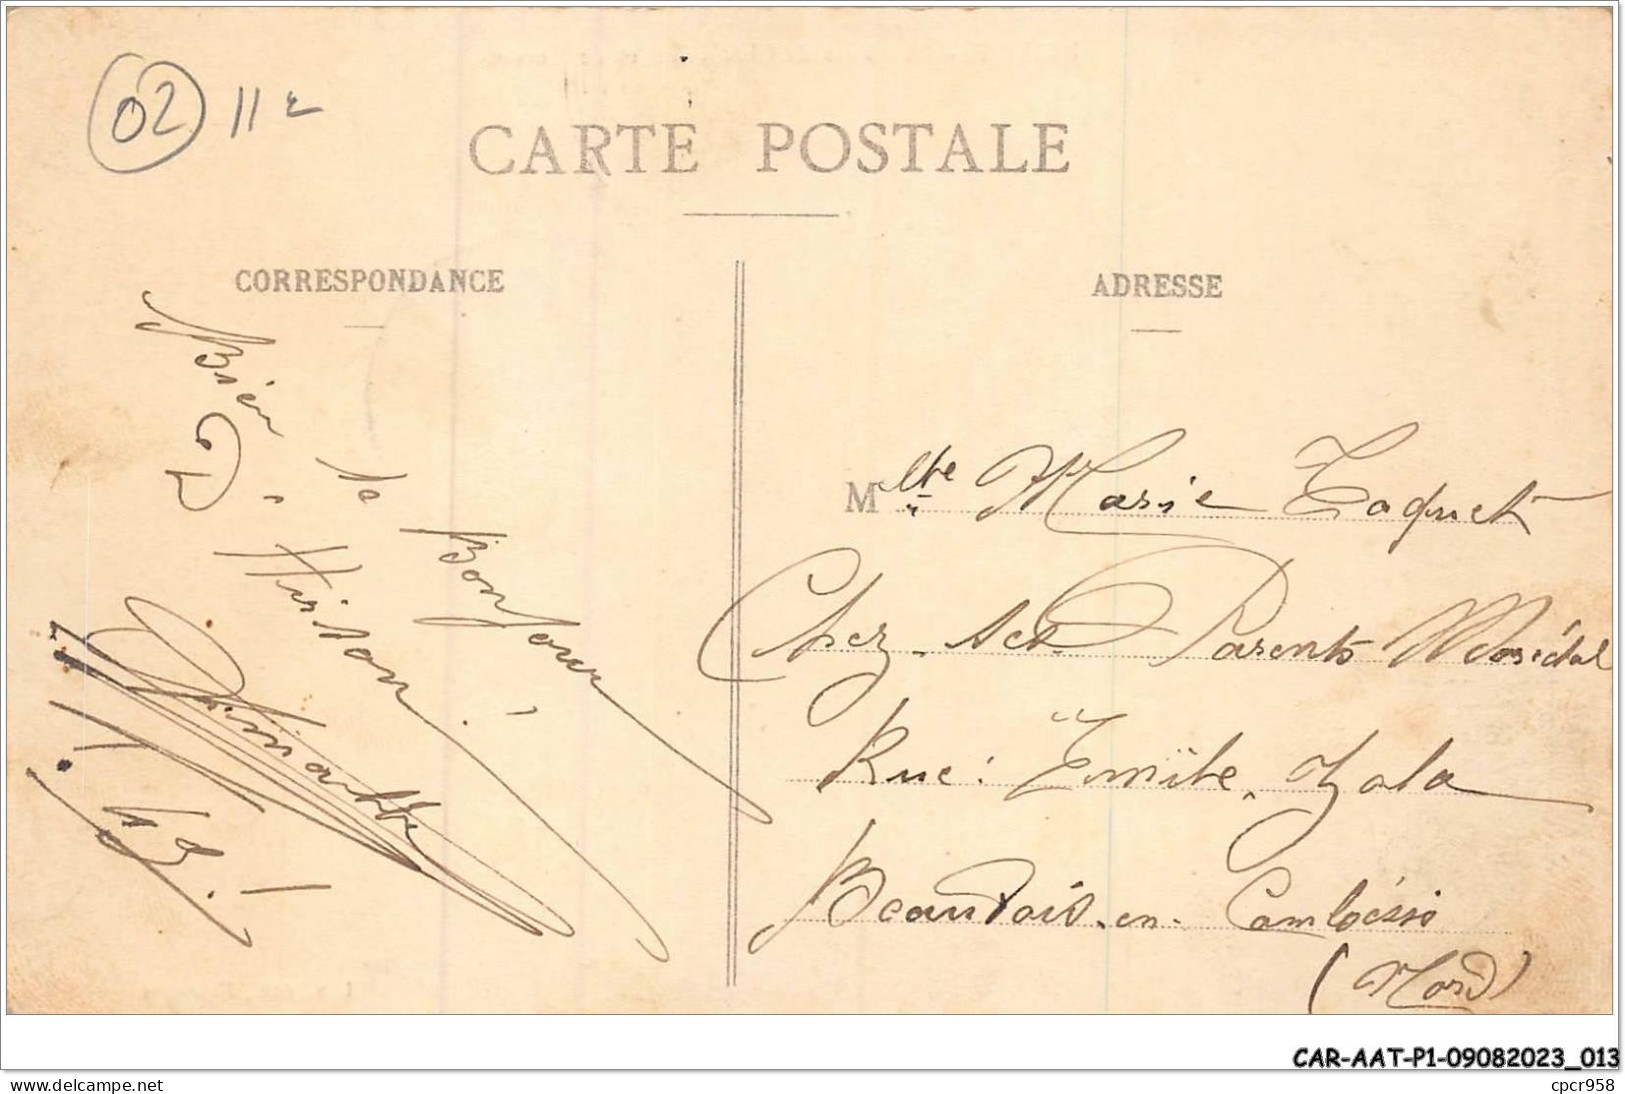 02 11e
CARTE POSTALE
CORRESPONDANCE
ADRESSE
Bien le Bonjour
D'Hirson
Mlle Marie Taquet
Chez ses Parents
Rue: Emile Zola
Beauvois-en-Cambrésis
(Nord)
CAR-AAT-P1-09082023_013
delcampe.net
cpcr958